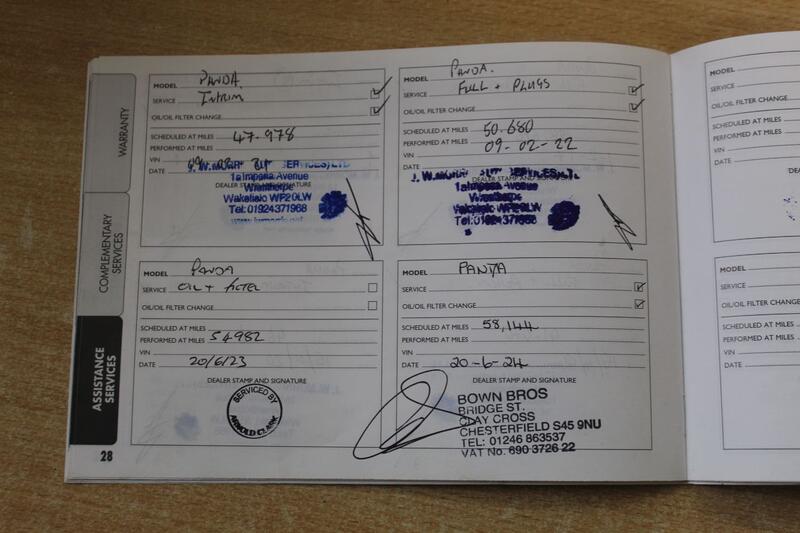 WARRANTY
COMPLEMENTARY
SERVICES
ASSISTANCE
SERVICES
28
MODEL PANDA.
SERVICE INTRIM
OIL/OIL FILTER CHANGE
SCHEDULED AT MILES 47.978
PERFORMED AT MILES
VIN
DATE
DEALER STAMP AND SIGNATURE
1a Imperial Avenue
Wrenthorpe
Wakefield WF2 0LW
Tel: 01924371968
MODEL PANDA.
SERVICE FULL + PLUGS
OIL/OIL FILTER CHANGE
SCHEDULED AT MILES 50.680
PERFORMED AT MILES 09-02-22
VIN
DATE
DEALER STAMP AND SIGNATURE
1a Imperial Avenue
Wrenthorpe
Wakefield WF2 0LW
Tel: 01924371968
MODEL PANDA
SERVICE OIL + FILTER
OIL/OIL FILTER CHANGE
SCHEDULED AT MILES
PERFORMED AT MILES 54982
VIN
DATE 20/6/23
DEALER STAMP AND SIGNATURE
SERVICED BY
ARNOLD CLARK
MODEL PANDA
SERVICE
OIL/OIL FILTER CHANGE
SCHEDULED AT MILES 58,144
PERFORMED AT MILES
VIN
DATE 20-6-24
DEALER STAMP AND SIGNATURE
BOWN BROS
BRIDGE ST.
CLAY CROSS
CHESTERFIELD S45 9NU
TEL: 01246 863537
VAT No. 690 3726 22
MODEL
SERVICE
OIL/OIL FI
SCHEDULED
PERFORMED
VIN
DATE
MODEL
SERVICE
OIL/OIL FILT
SCHEDULED
PERFORMED A
VIN
DATE